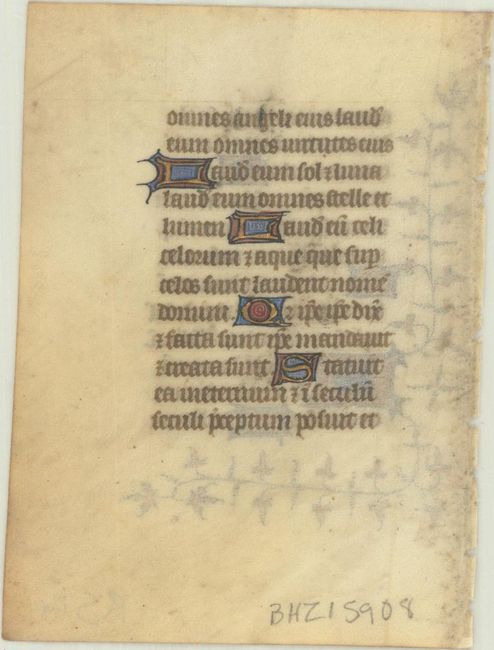 omnes angeli eius laud
eum omnes virtutes eius
Laud eum sol ⁊ luna
laud eum omnes stelle et
lumen Laud eū celi
celorum ⁊ aque que sup
celos sunt laudent nome
domini. Q ip̄e dix̄
⁊ facta sunt ip̄e mandauit
⁊ creata sunt Statuit
ea ineternum ⁊ ī seculū
seculi p̄ceptum posuit et
BHZ15908